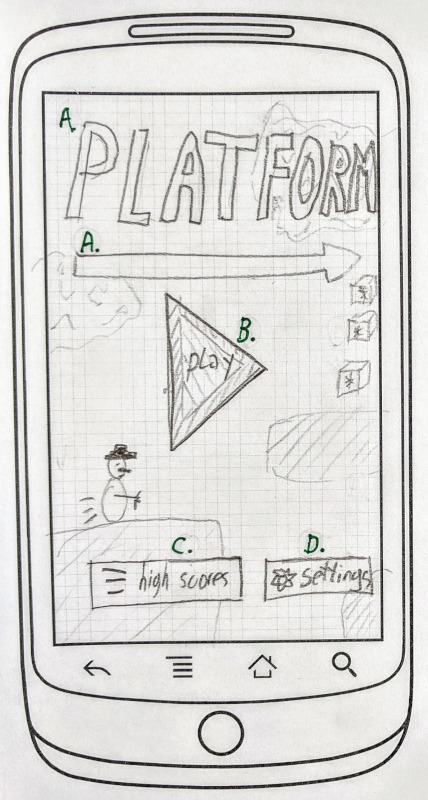 A.
PLATFORM
A.
B.
play
C.
D.
high scores
settings